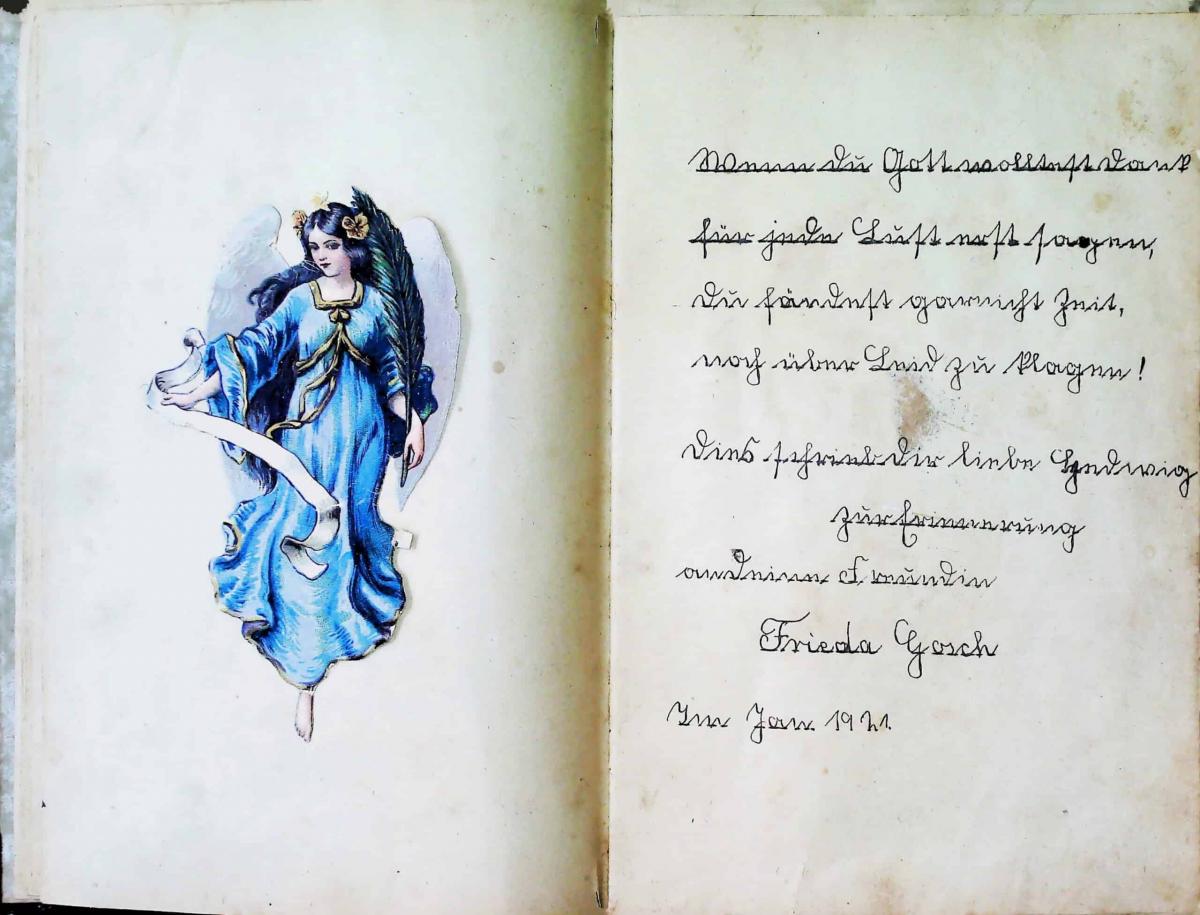 Wenn du Gott wolltest Dank
für jede Lust erst sagen,
du fändest garnicht Zeit,
noch über Leid zu klagen!
Dies schrieb dir liebe Hedwig
zur Erinnerung
an deine Freundin
Frieda Gosch
Im Jan 1921.